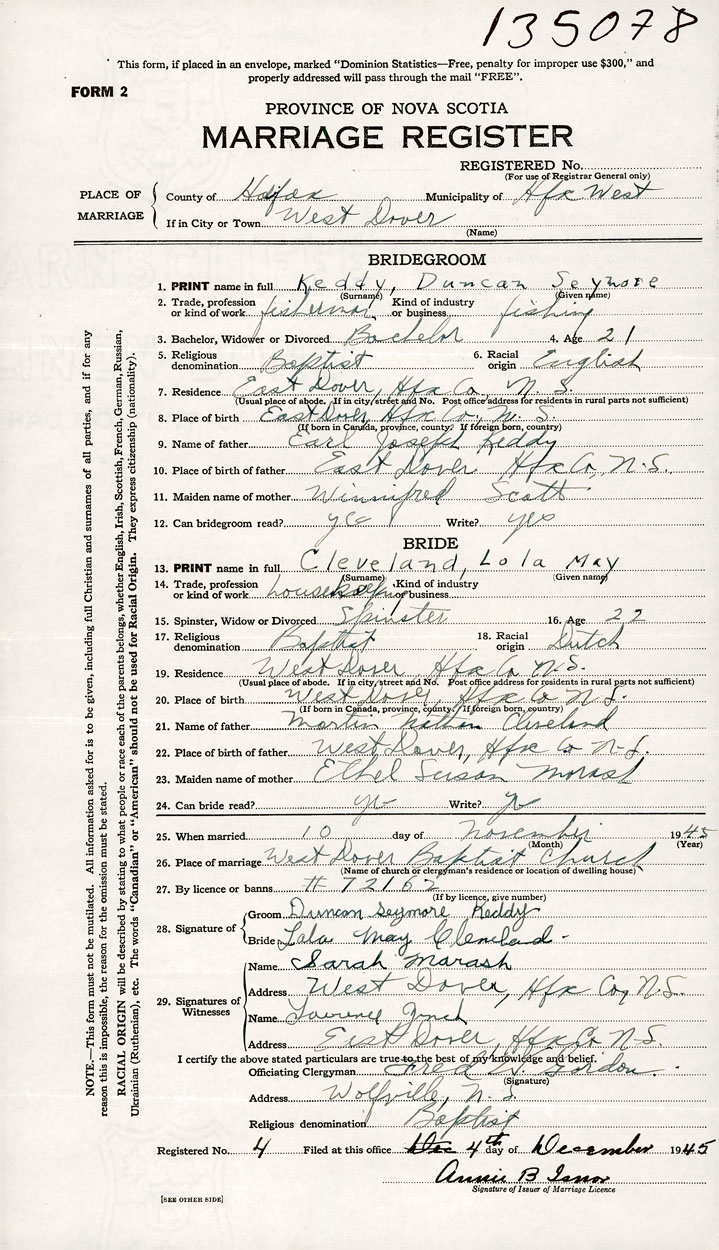 135078
This form, if placed in an envelope, marked "Dominion Statistics—Free, penalty for improper use $300," and
properly addressed will pass through the mail "FREE".
FORM 2
PROVINCE OF NOVA SCOTIA
MARRIAGE REGISTER
REGISTERED No.
(For use of Registrar General only)
PLACE OF MARRIAGE
County of Halifax Municipality of Hfx West
If in City or Town West Dover
(Name)
BRIDEGROOM
1. PRINT name in full Keddy, Duncan Seymore
(Surname) (Given name)
2. Trade, profession or kind of work fisherman Kind of industry or business fishing
3. Bachelor, Widower or Divorced Bachelor 4. Age 21
5. Religious denomination Baptist 6. Racial origin English
7. Residence East Dover, Hfx Co, N. S.
(Usual place of abode. If in city, street and No. Post office address for residents in rural parts not sufficient)
8. Place of birth East Dover, Hfx Co., N. S.
(If born in Canada, province, county. If foreign born, country)
9. Name of father Earl Joseph Keddy
10. Place of birth of father East Dover Hfx Co, N.S.
11. Maiden name of mother Winnifred Scott
12. Can bridegroom read? yes Write? yes
BRIDE
13. PRINT name in full Cleveland, Lola May
(Surname) (Given name)
14. Trade, profession or kind of work housekeeping Kind of industry or business
15. Spinster, Widow or Divorced Spinster 16. Age 22
17. Religious denomination Baptist 18. Racial origin Dutch
19. Residence West Dover, Hfx Co N.S.
(Usual place of abode. If in city, street and No. Post office address for residents in rural parts not sufficient)
20. Place of birth West Dover, Hfx Co N.S.
(If born in Canada, province, county. If foreign born, country)
21. Name of father Martin Cleveland
22. Place of birth of father West Dover, Hfx Co N.S.
23. Maiden name of mother Ethel Susan Morash
24. Can bride read? yes Write? yes
25. When married 10 day of November 1945
(Month) (Year)
26. Place of marriage West Dover Baptist Church
(Name of church or clergyman's residence or location of dwelling house)
27. By licence or banns # 72162
(If by licence, give number)
28. Signature of
Groom Duncan Seymore Keddy
Bride Lola May Cleveland
29. Signatures of Witnesses
Name Sarah Marash
Address West Dover, Hfx Co, N.S.
Name
Address East Dover, Hfx Co N.S.
I certify the above stated particulars are true to the best of my knowledge and belief.
Officiating Clergyman Fred Gordon
(Signature)
Address Wolfville, N. S.
Religious denomination Baptist
Registered No. 4 Filed at this office Dec 4th day of December 1945
Annie B Isnor
Signature of Issuer of Marriage Licence
[SEE OTHER SIDE]
NOTE.—This form must not be mutilated. All information asked for is to be given, including full Christian and surnames of all parties, and if for any
reason this is impossible, the reason for the omission must be stated.
RACIAL ORIGIN will be described by stating to what people or race each of the parents belongs, whether English, Irish, Scottish, French, German, Russian,
Ukrainian (Ruthenian), etc. The words "Canadian" or "American" should not be used for Racial Origin. They express citizenship (nationality).